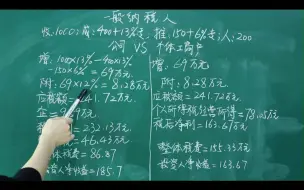 一般纳税人
收:1000;有:400+13%专,推:150+6%专;人:200
公司 VS 个体工商户
增:1000×13%-400×13%
-150×6%=69万元.
增:69万元
附:69×12%=8.28万元
附:8.28万元.
应税额=241.72万元
应税额=241.72万元
个人所得税经营所得=78.05万元
税后净利=163.67万元
=232.13万元
=46.43万元
整体税费=155.33万元
税费=86.87
投资人净收益=163.67
投资人净收益=185.7